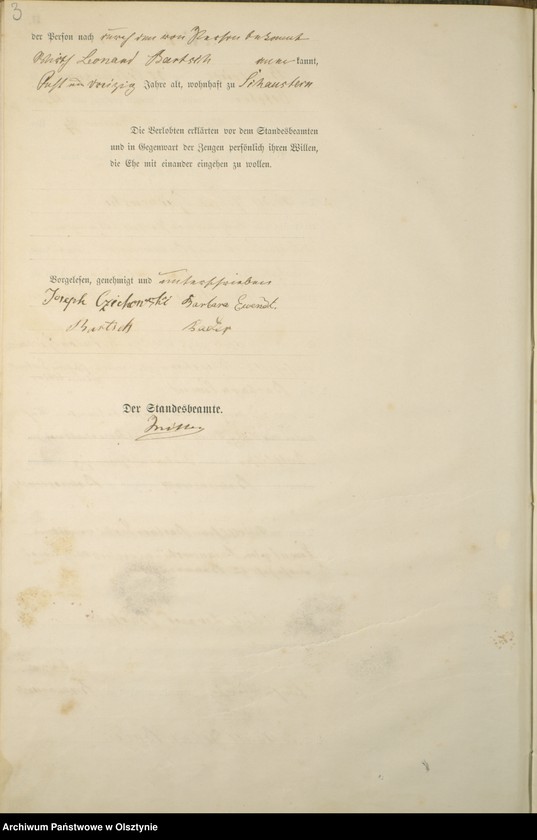 3
der Person nach durch den von Person bekannt
Wirth Leonard Bartsch kannt,
Jahre alt, wohnhaft zu Schaustern
Die Verlobten erklärten vor dem Standesbeamten
und in Gegenwart der Zeugen persönlich ihren Willen,
die Ehe mit einander eingehen zu wollen.
Vorgelesen, genehmigt und unterschrieben
Joseph Czichowski Barbara
Bartsch
Der Standesbeamte.
Archiwum Państwowe w Olsztynie